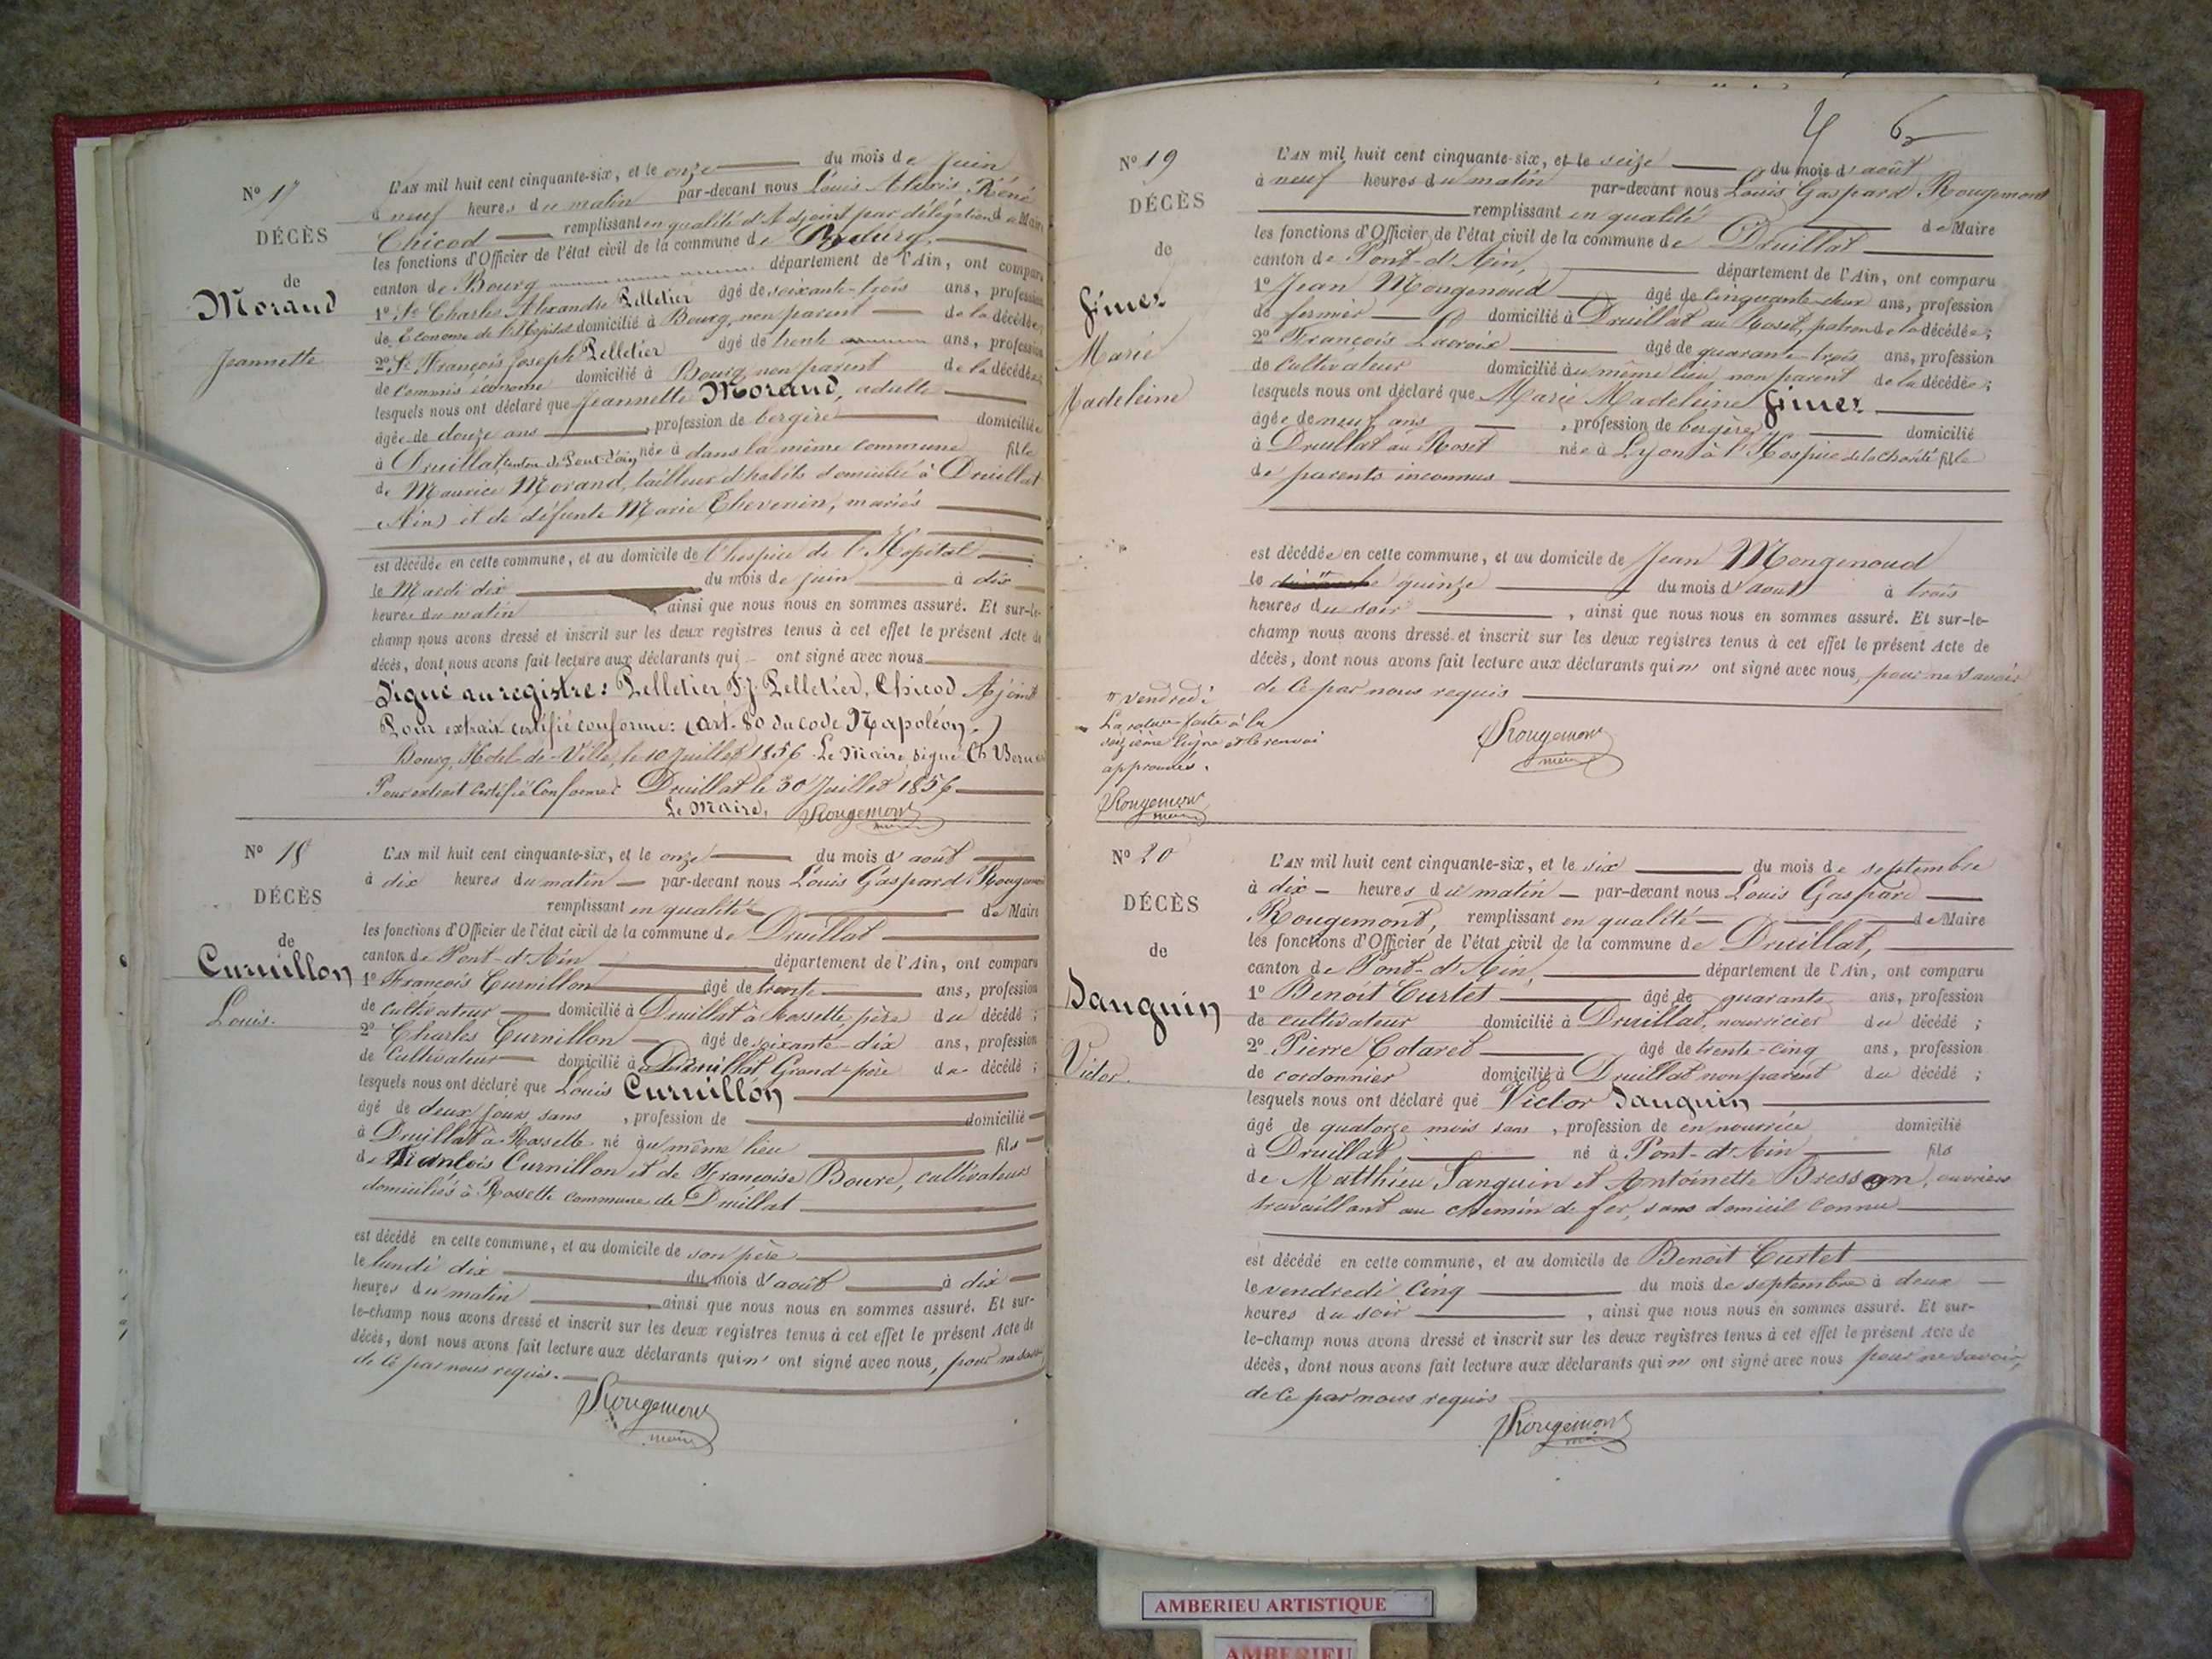 N° 17
DÉCÈS
de
Morand
Jeannette
L'AN mil huit cent cinquante-six, et le onze du mois de Juin
à neuf heures du matin par-devant nous Louis Alexis Réné
Chicod remplissant en qualité d'Adjoint par délégation de Maire
les fonctions d'Officier de l'état civil de la commune de Bourg,
canton de Bourg département de l'Ain, ont comparu
1° Sr Charles Alexandre Pelletier âgé de soixante-trois ans, profession
de Econome de l'Hôpital domicilié à Bourg, non parent de la décédée;
2° Sr François Joseph Pelletier âgé de trente ans, profession
de Commis économe domicilié à Bourg, non parent de la décédée
lesquels nous ont déclaré que Jeannette Morand, adulte
âgée de douze ans, profession de bergère domiciliée
à Druillat canton de Pont-d'ain née à dans la même commune fille
de Maurice Morand, tailleur d'habits domicilié à Druillat
(Ain) et de défunte Marie Thevenin, mariés
est décédée en cette commune, et au domicile de l'hospice de l'Hôpital
le Mardi dix du mois de juin à dix
heures du matin, ainsi que nous nous en sommes assuré. Et sur-le-
champ nous avons dressé et inscrit sur les deux registres tenus à cet effet le présent Acte de
décès, dont nous avons fait lecture aux déclarants qui ont signé avec nous
Signé au registre: Pelletier F. J. Pelletier, Chicod Ajoint
Pour extrait certifié conforme: (art. 80 du code Napoléon.)
Bourg, Hotel-de-Ville, le 10 Juillet 1856 Le Maire, signé Ch
Pour extrait Certifié Conforme: Druillat le 30 Juillet 1856
Le Maire, Rougemont
maire
N° 18
DÉCÈS
de
Curnillon
Louis.
L'AN mil huit cent cinquante-six, et le onze du mois d'août
à dix heures du matin par-devant nous Louis Gaspard Rougemont
remplissant en qualité de Maire
les fonctions d'Officier de l'état civil de la commune de Druillat
canton de Pont-d'Ain département de l'Ain, ont comparu
1° François Curnillon âgé de trente ans, profession
de cultivateur domicilié à Druillat à Rossette, père du décédé;
2° Charles Curnillon âgé de soixante-dix ans, profession
de Cultivateur domicilié à Druillat Grand-père du décédé;
lesquels nous ont déclaré que Louis Curnillon
âgé de deux jours sans, profession de domicilié
à Druillat à Rossette né au même lieu fils
de François Curnillon et de Françoise Bouve, cultivateurs
domiciliés à Rossette commune de Druillat
est décédé en cette commune, et au domicile de son père
le lundi dix du mois d'août à dix
heures du matin, ainsi que nous nous en sommes assuré. Et sur-
le-champ nous avons dressé et inscrit sur les deux registres tenus à cet effet le présent Acte de
décès, dont nous avons fait lecture aux déclarants qui n' ont signé avec nous, pour ne savoir
de ce par nous requis.
Rougemont
maire
N° 19
DÉCÈS
de
Finez
Marie
Madeleine
L'AN mil huit cent cinquante-six, et le seize du mois d'août
à neuf heures du matin par-devant nous Louis Gaspard Rougemont
remplissant en qualité de Maire
les fonctions d'Officier de l'état civil de la commune de Druillat
canton de Pont-d'Ain, département de l'Ain, ont comparu
1° Jean Mongenoud âgé de Cinquante-deux ans, profession
de fermier domicilié à Druillat au Roset, patron de la décédée;
2° François Lacroix âgé de quarante-trois ans, profession
de Cultivateur domicilié au même lieu non parent de la décédée;
lesquels nous ont déclaré que Marie Madeleine Finez
âgée de neuf ans, profession de bergère domicilié
à Druillat au Roset née à Lyon à l'Hospice de la Charité fille
de parents inconnus
est décédée en cette commune, et au domicile de Jean Mongenoud
le quinze du mois d'août à trois
heures du soir, ainsi que nous nous en sommes assuré. Et sur-le-
champ nous avons dressé et inscrit sur les deux registres tenus à cet effet le présent Acte de
décès, dont nous avons fait lecture aux déclarants qui n' ont signé avec nous, pour ne savoir
de ce par nous requis
Rougemont
maire
vendredi
La rature faite à la
seizième ligne et le renvoi
approuvés.
Rougemont
maire
N° 20
DÉCÈS
de
Sanguin
Victor.
L'AN mil huit cent cinquante-six, et le six du mois de septembre
à dix heures du matin par-devant nous Louis Gaspard
Rougemont, remplissant en qualité de Maire
les fonctions d'Officier de l'état civil de la commune de Druillat,
canton de Pont-d'Ain, département de l'Ain, ont comparu
1° Benoit Curtet âgé de quarante ans, profession
de cultivateur domicilié à Druillat, nourricier du décédé;
2° Pierre Cotaret âgé de trente-cinq ans, profession
de cordonnier domicilié à Druillat non parent du décédé;
lesquels nous ont déclaré que Victor Sanguin
âgé de quatorze mois sans, profession de en nourrice domicilié
à Druillat, né à Pont-d'Ain fils
de Matthieu Sanguin et Antoinette Bresson, ouvriers
travaillant au chemin de fer, sans domicil connu
est décédé en cette commune, et au domicile de Benoit Curtet
le vendredi cinq du mois de septembre à deux
heures du soir, ainsi que nous nous en sommes assuré. Et sur-
le-champ nous avons dressé et inscrit sur les deux registres tenus à cet effet le présent Acte de
décès, dont nous avons fait lecture aux déclarants qui n' ont signé avec nous pour ne savoir,
de ce par nous requis
Rougemont
maire
AMBERIEU ARTISTIQUE
AMBERIEU